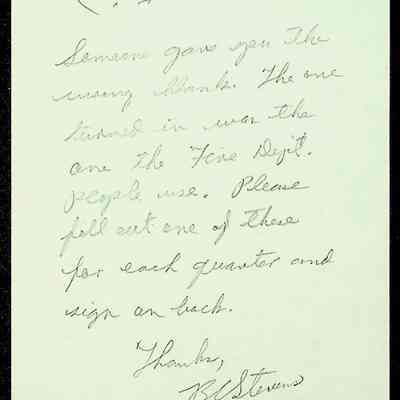 Someone gave you the
wrong blank. The one
turned in was the
one the Fire Dept.
people use. Please
fill out one of these
for each quarter and
sign on back.
Thanks,
BC Stevens